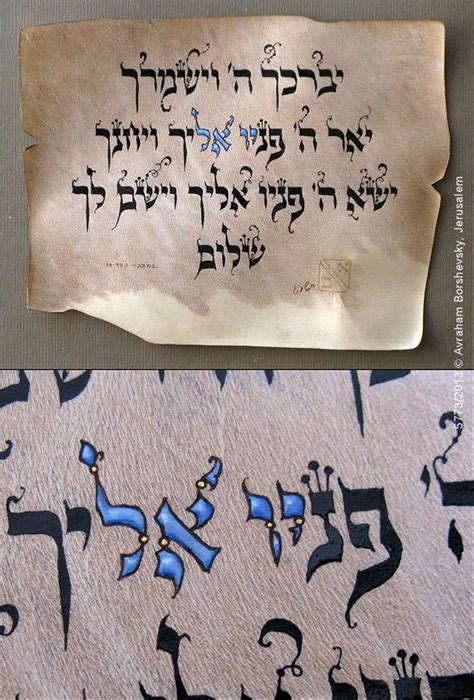 יברכך ה' וישמרך
יאר ה' פניו אליך ויחנך
ישא ה' פניו אליך וישם לך
שלום
במדבר
5773/2013 © Avraham Borshevsky, Jerusalem
ה' פניו אליך